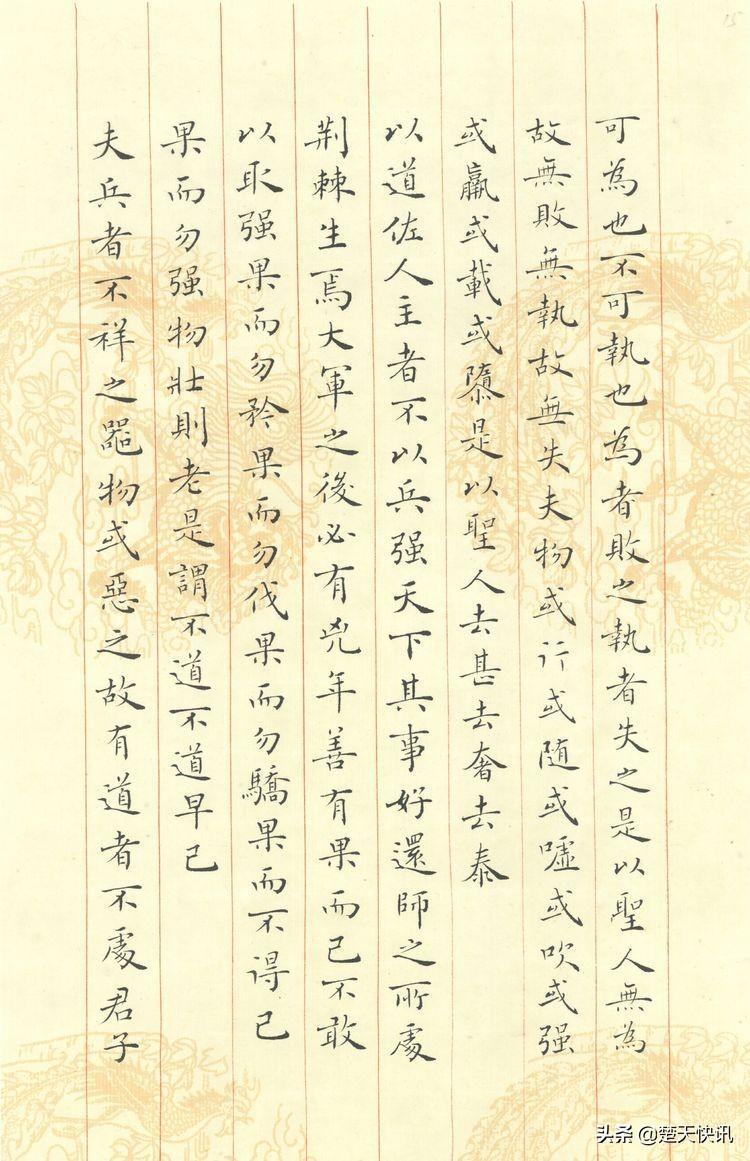 15
可為也不可執也為者敗之執者失之是以聖人無為
故無敗無執故無失夫物或行或随或嘘或吹或强
或羸或載或隳是以聖人去甚去奢去泰
以道佐人主者不以兵强天下其事好還師之所處
荆棘生焉大軍之後必有兇年善有果而已不敢
以取强果而勿矜果而勿伐果而勿驕果而不得已
果而勿强物壯則老是謂不道不道早已
夫兵者不祥之器物或惡之故有道者不處君子
头条 @楚天快讯